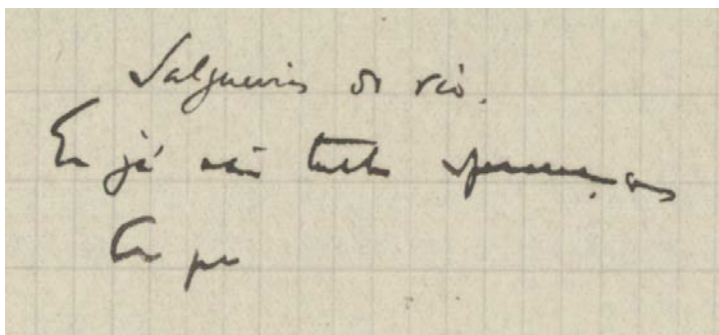 Salgueiros do rio.
Eu já não tenho esperanças
Em que